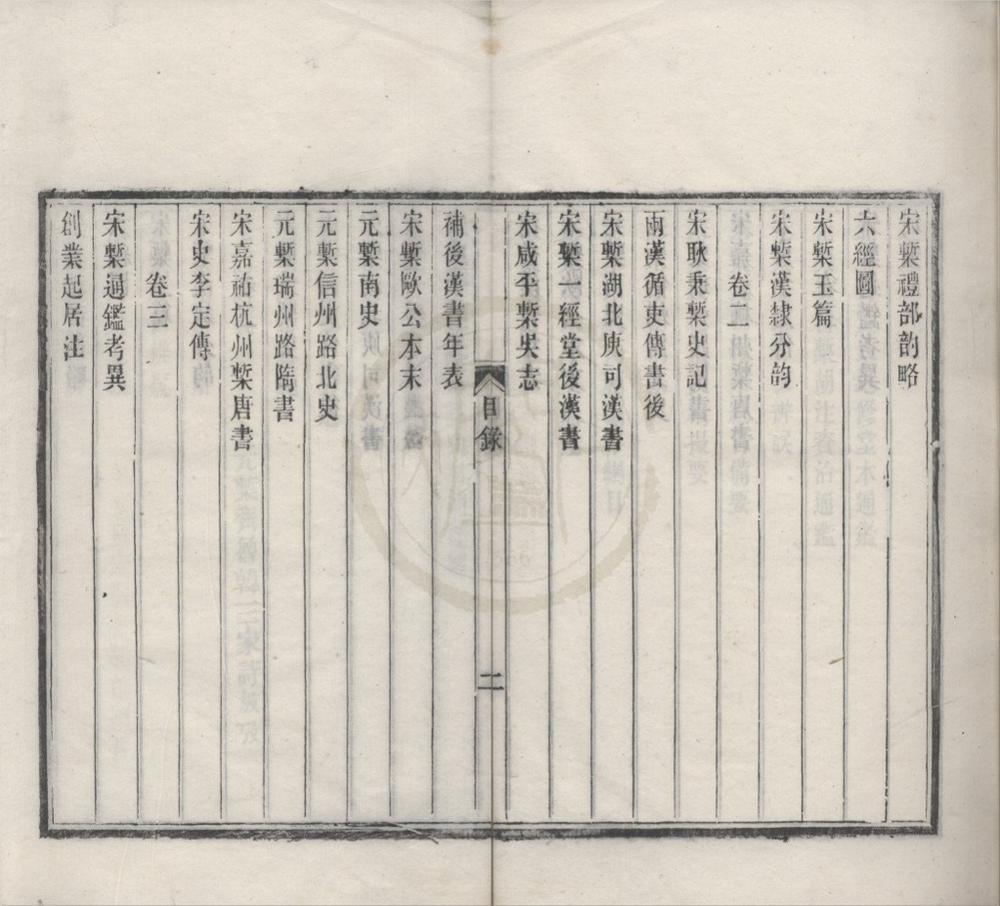 宋槧禮部韵略
六經圖
宋槧玉篇
宋槧漢隸分韵
卷二
宋耿秉槧史記
兩漢循吏傳書後
宋槧湖北庾司漢書
宋槧一經堂後漢書
宋咸平槧吳志
目錄
二
補後漢書年表
宋槧歐公本末
元槧南史
元槧信州路北史
元槧瑞州路隋書
宋嘉祐杭州槧唐書
宋史李定傳
卷三
宋槧通鑑考異
創業起居注